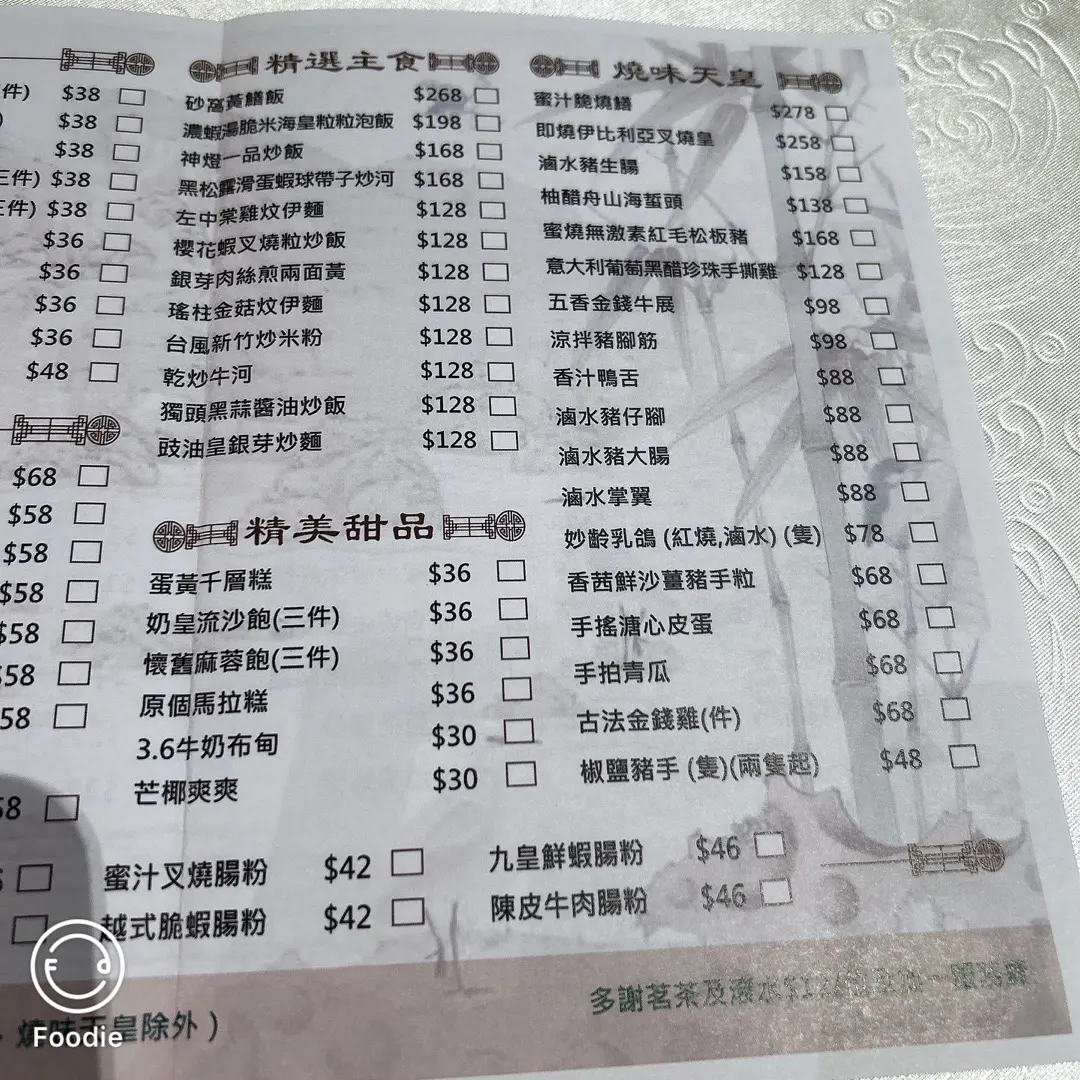 件) $38
) $38
$38
三件) $38
三件) $38
$36
$36
$36
$36
$48
$68
$58
$58
$58
$58
$58
58
58
精選主食
砂窩黃鱔飯 $268
濃蝦湯脆米海皇粒粒泡飯 $198
神燈一品炒飯 $168
黑松露滑蛋蝦球帶子炒河 $168
左中棠雞炆伊麵 $128
櫻花蝦叉燒粒炒飯 $128
銀芽肉絲煎兩面黃 $128
瑤柱金菇炆伊麵 $128
台風新竹炒米粉 $128
乾炒牛河 $128
獨頭黑蒜醬油炒飯 $128
豉油皇銀芽炒麵 $128
精美甜品
蛋黃千層糕 $36
奶皇流沙飽(三件) $36
懷舊麻蓉飽(三件) $36
原個馬拉糕 $36
3.6牛奶布甸 $30
芒椰爽爽 $30
燒味天皇
蜜汁脆燒鱔 $278
即燒伊比利亞叉燒皇 $258
滷水豬生腸 $158
柚醋舟山海蜇頭 $138
蜜燒無激素紅毛松板豬 $168
意大利葡萄黑醋珍珠手撕雞 $128
五香金錢牛展 $98
涼拌豬腳筋 $98
香汁鴨舌 $88
滷水豬仔腳 $88
滷水豬大腸 $88
滷水掌翼 $88
妙齡乳鴿 (紅燒,滷水) (隻) $78
香茜鮮沙薑豬手粒 $68
手搖溏心皮蛋 $68
手拍青瓜 $68
古法金錢雞(件) $68
椒鹽豬手 (隻)(兩隻起) $48
蜜汁叉燒腸粉 $42
九皇鮮蝦腸粉 $46
越式脆蝦腸粉 $42
陳皮牛肉腸粉 $46
燒味天皇除外 )
多謝茗茶及滾水
Foodie